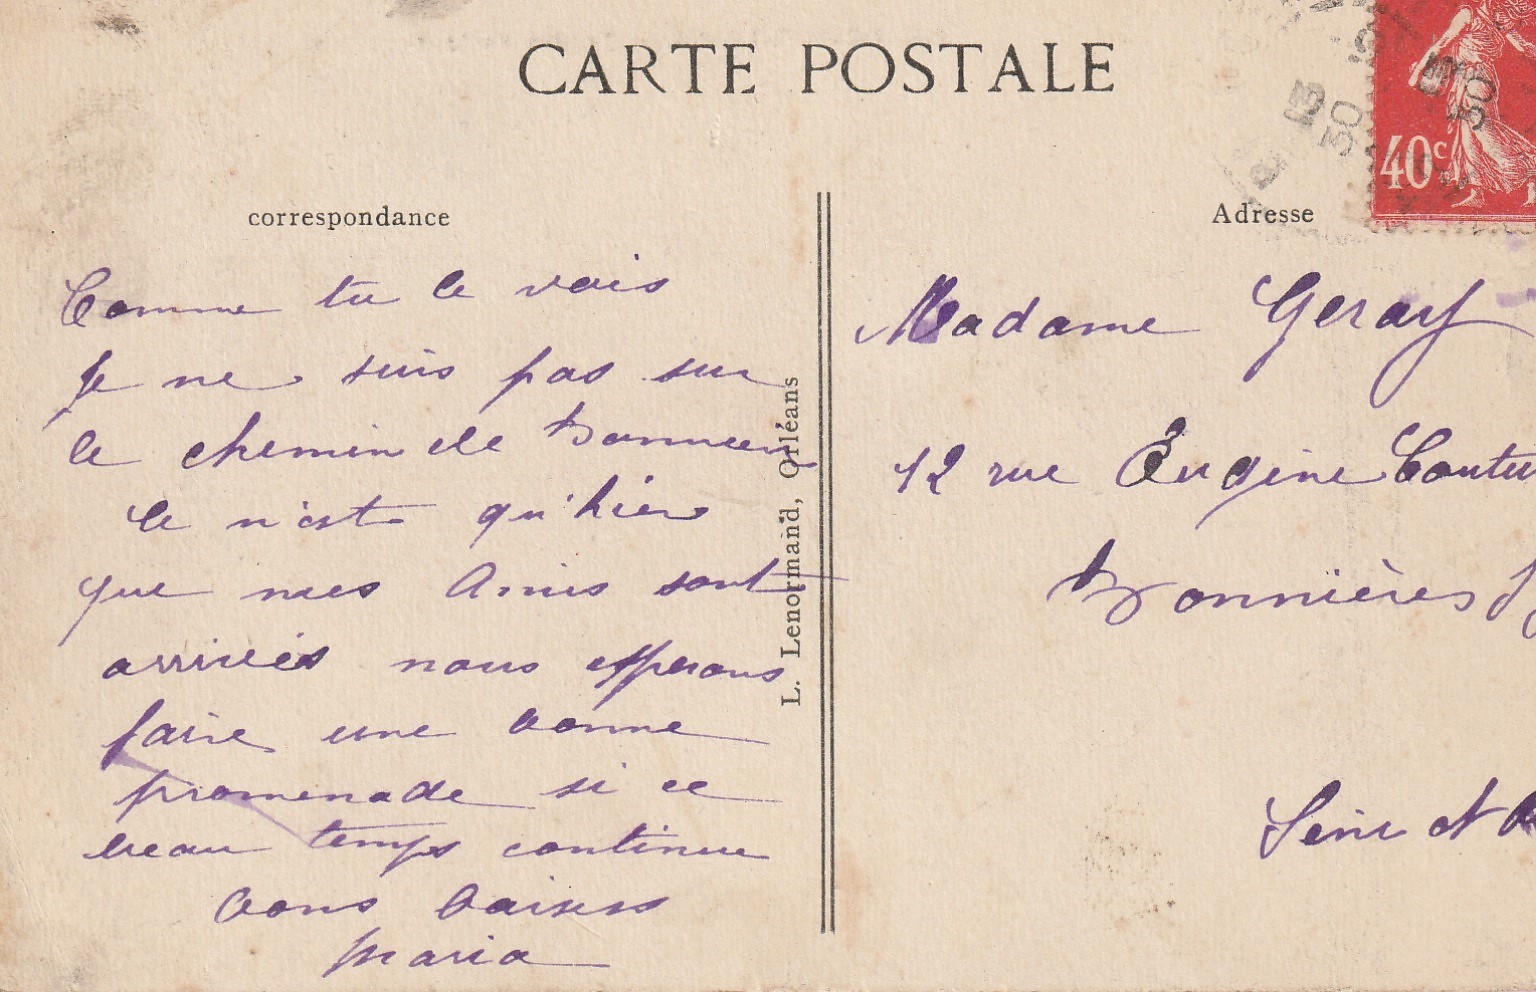 CARTE POSTALE
correspondance
Comme tu le vois
Je ne suis pas sur
le chemin de
Ce n'est qu'hier
que mes Amis sont
arrivés nous esperons
faire une bonne
promenade si ce
beau temps continue
bons baisers
Maria
L. Lenormand, Orléans
Adresse
40c
30
30
Madame
12 rue Eugène Coutu
Bonnières
Seine et